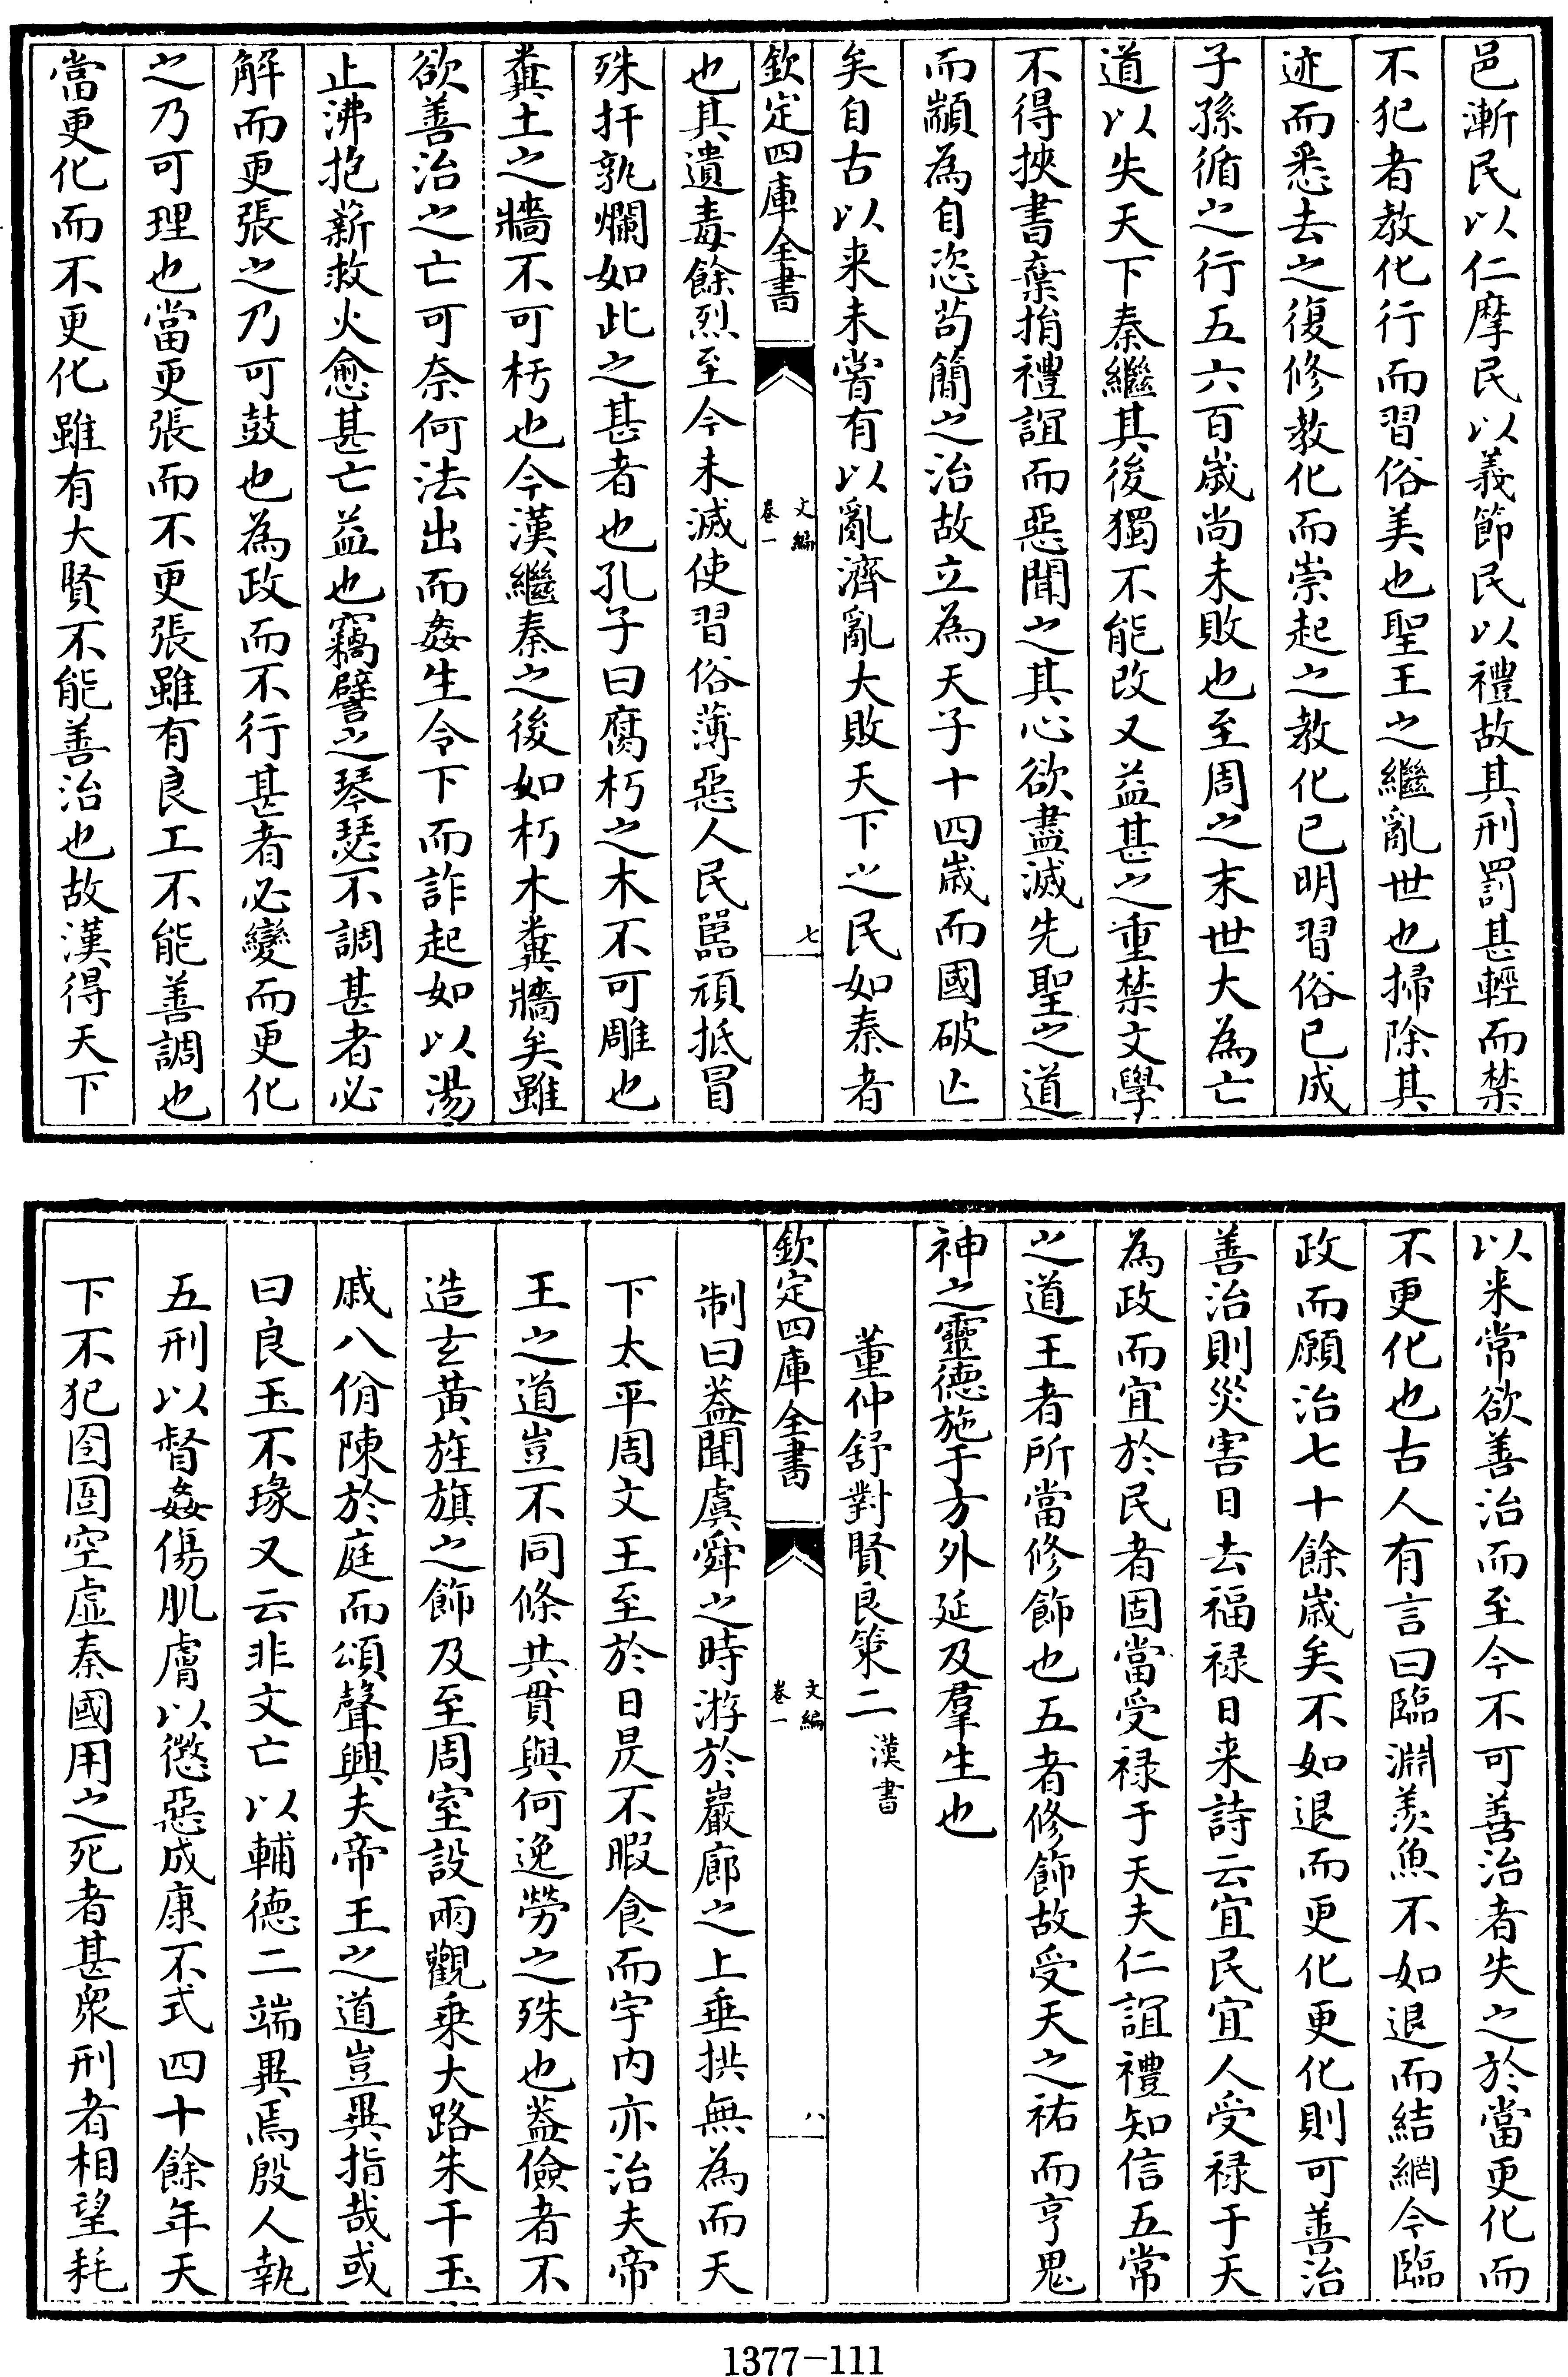 邑漸民以仁摩民以義節民以禮故其刑罰甚輕而禁
不犯者教化行而習俗美也聖王之繼亂世也掃除其
迹而悉去之復修教化而崇起之教化已明習俗已成
子孫循之行五六百歲尚未敗也至周之末世大為亡
道以失天下秦繼其後獨不能改又益甚之重禁文學
不得挾書棄捐禮誼而惡聞之其心欲盡滅先聖之道
而顓為自恣茍簡之治故立為天子十四歲而國破亾
矣自古以来未嘗有以亂濟亂大敗天下之民如秦者
欽定四庫全書
文編
卷一
七
也其遺毒餘烈至今未滅使習俗薄惡人民嚚頑抵冒
殊扞孰爛如此之甚者也孔子曰腐朽之木不可雕也
糞土之牆不可杇也今漢繼秦之後如朽木糞牆矣雖
欲善治之亡可奈何法出而姦生令下而詐起如以湯
止沸抱薪救火愈甚亡益也竊譬之琴瑟不調甚者必
解而更張之乃可鼓也為政而不行甚者必變而更化
之乃可理也當更張而不更張雖有良工不能善調也
當更化而不更化雖有大賢不能善治也故漢得天下
以来常欲善治而至今不可善治者失之於當更化而
不更化也古人有言曰臨淵羨魚不如退而結網今臨
政而願治七十餘歲矣不如退而更化更化則可善治
善治則災害日去福禄日来詩云宜民宜人受禄于天
為政而宜於民者固當受禄于天夫仁誼禮知信五常
之道王者所當修飾也五者修飾故受天之祐而亨鬼
神之靈德施于方外延及羣生也
董仲舒對賢良策二 漢書
欽定四庫全書
文編
卷一
八
制曰蓋聞虞舜之時游於巖廊之上垂拱無為而天
下太平周文王至於日昃不暇食而宇内亦治夫帝
王之道豈不同條共貫與何逸勞之殊也蓋儉者不
造玄黃旌旗之飾及至周室設兩觀乗大路朱干玉
戚八佾陳於庭而頌聲興夫帝王之道豈異指哉或
曰良玉不瑑又云非文亡以輔德二端異焉殷人執
五刑以督姦傷肌膚以懲惡成康不式四十餘年天
下不犯囹圄空虛秦國用之死者甚眾刑者相望耗
1377-111